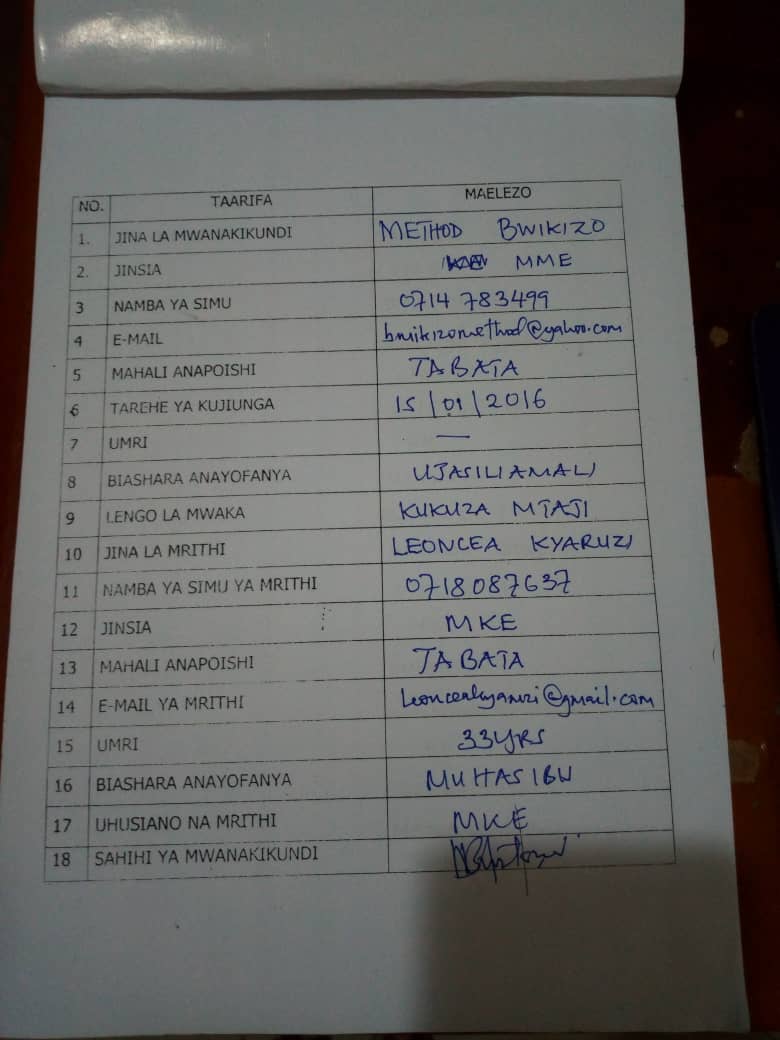 NO. TAARIFA MAELEZO
1. JINA LA MWANAKIKUNDI METHOD BWIKIZO
2. JINSIA MME
3 NAMBA YA SIMU 0714 783499
4 E-MAIL bwikizomethod@yahoo.com
5 MAHALI ANAPOISHI TABATA
6 TAREHE YA KUJIUNGA 15/01/2016
7 UMRI —
8 BIASHARA ANAYOFANYA UJASILIAMALI
9 LENGO LA MWAKA KUKUZA MTAJI
10 JINA LA MRITHI LEONCEA KYARUZI
11 NAMBA YA SIMU YA MRITHI 0718087637
12 JINSIA MKE
13 MAHALI ANAPOISHI TABATA
14 E-MAIL YA MRITHI leonceakyaruzi@gmail.com
15 UMRI 33YRS
16 BIASHARA ANAYOFANYA MUHASIBU
17 UHUSIANO NA MRITHI MKE
18 SAHIHI YA MWANAKIKUNDI